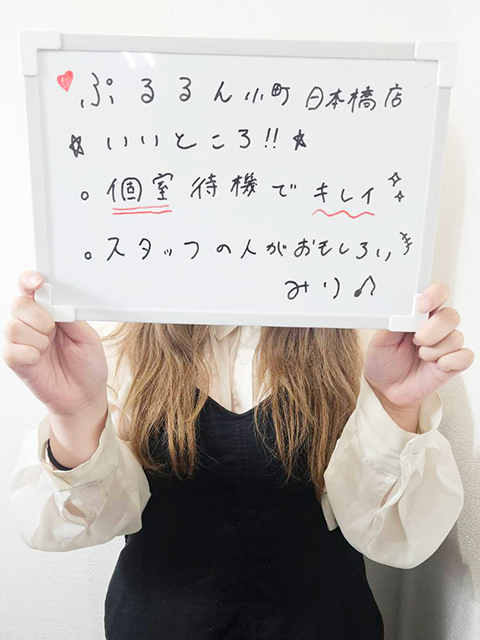 ぷるるん小町 日本橋店
いいところ!!
個室待機でキレイ
スタッフの人がおもしろい
みり